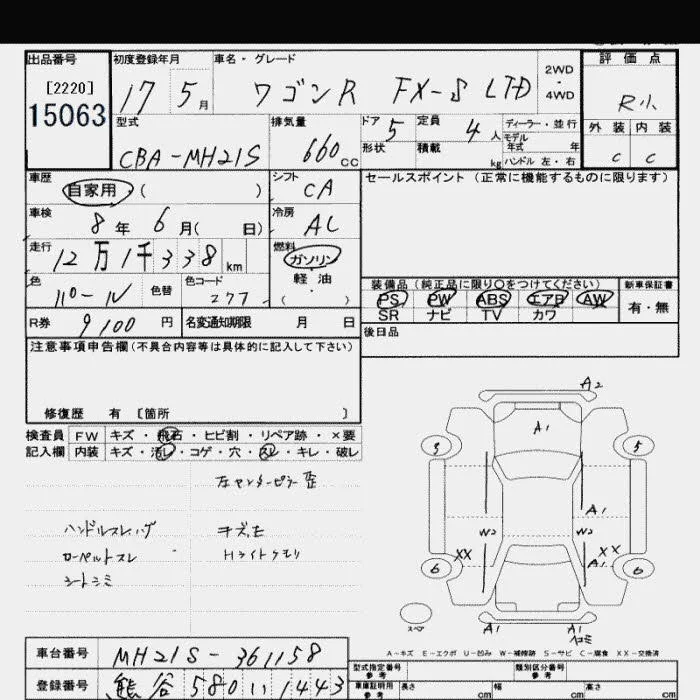 出品番号 初度登録年月 車名・グレード 2WD・4WD 評価点
[2220] 17 5月 ワゴンR FX-S LTD R小
15063
型式 排気量 ドア 5 定員 4人 ディーラー・並行 外装 内装
CBA-MH21S 660cc 形状 積載 kg モデル年式 年 C C
ハンドル 左・右
車歴 自家用 ( ) シフト CA セールスポイント(正常に機能するものに限ります)
車検 8年 6月( 日) 冷房 AC
走行 12万1千338km 燃料 ガソリン
軽油
( )
色 色替 色コード 277 装備品(純正品に限り○をつけてください) 新車保証書
PS PW ABS エアB AW 有・無
SR ナビ TV カワ
R券 9100円 名変通知期限 月 日 後日品
注意事項申告欄(不具合内容等は具体的に記入して下さい)
修復歴 有 [箇所 ]
検査員 FW キズ・飛石・ヒビ割・リペア跡・×要
記入欄 内装 キズ・汚レ・コゲ・穴・スレ・キレ・破レ
左センターピラー歪
ハンドルスレ,ハゲ キズ,モ
Hライトクモリ
シートシミ
A2
A1
3 5
A1
W2 W2
XX XX
A1
6 6
スペア
A1 A1
ヘコミ
A-キズ E-エクボ U-凹み W-補修跡 S-サビ C-腐食 XX-交換済
車台番号 MH21S-361158
型式指定番号 類別区分番号
参考 参考
登録番号 熊谷 580 11 1443
車庫証明用 長さ cm 幅 cm 高さ cm
参考